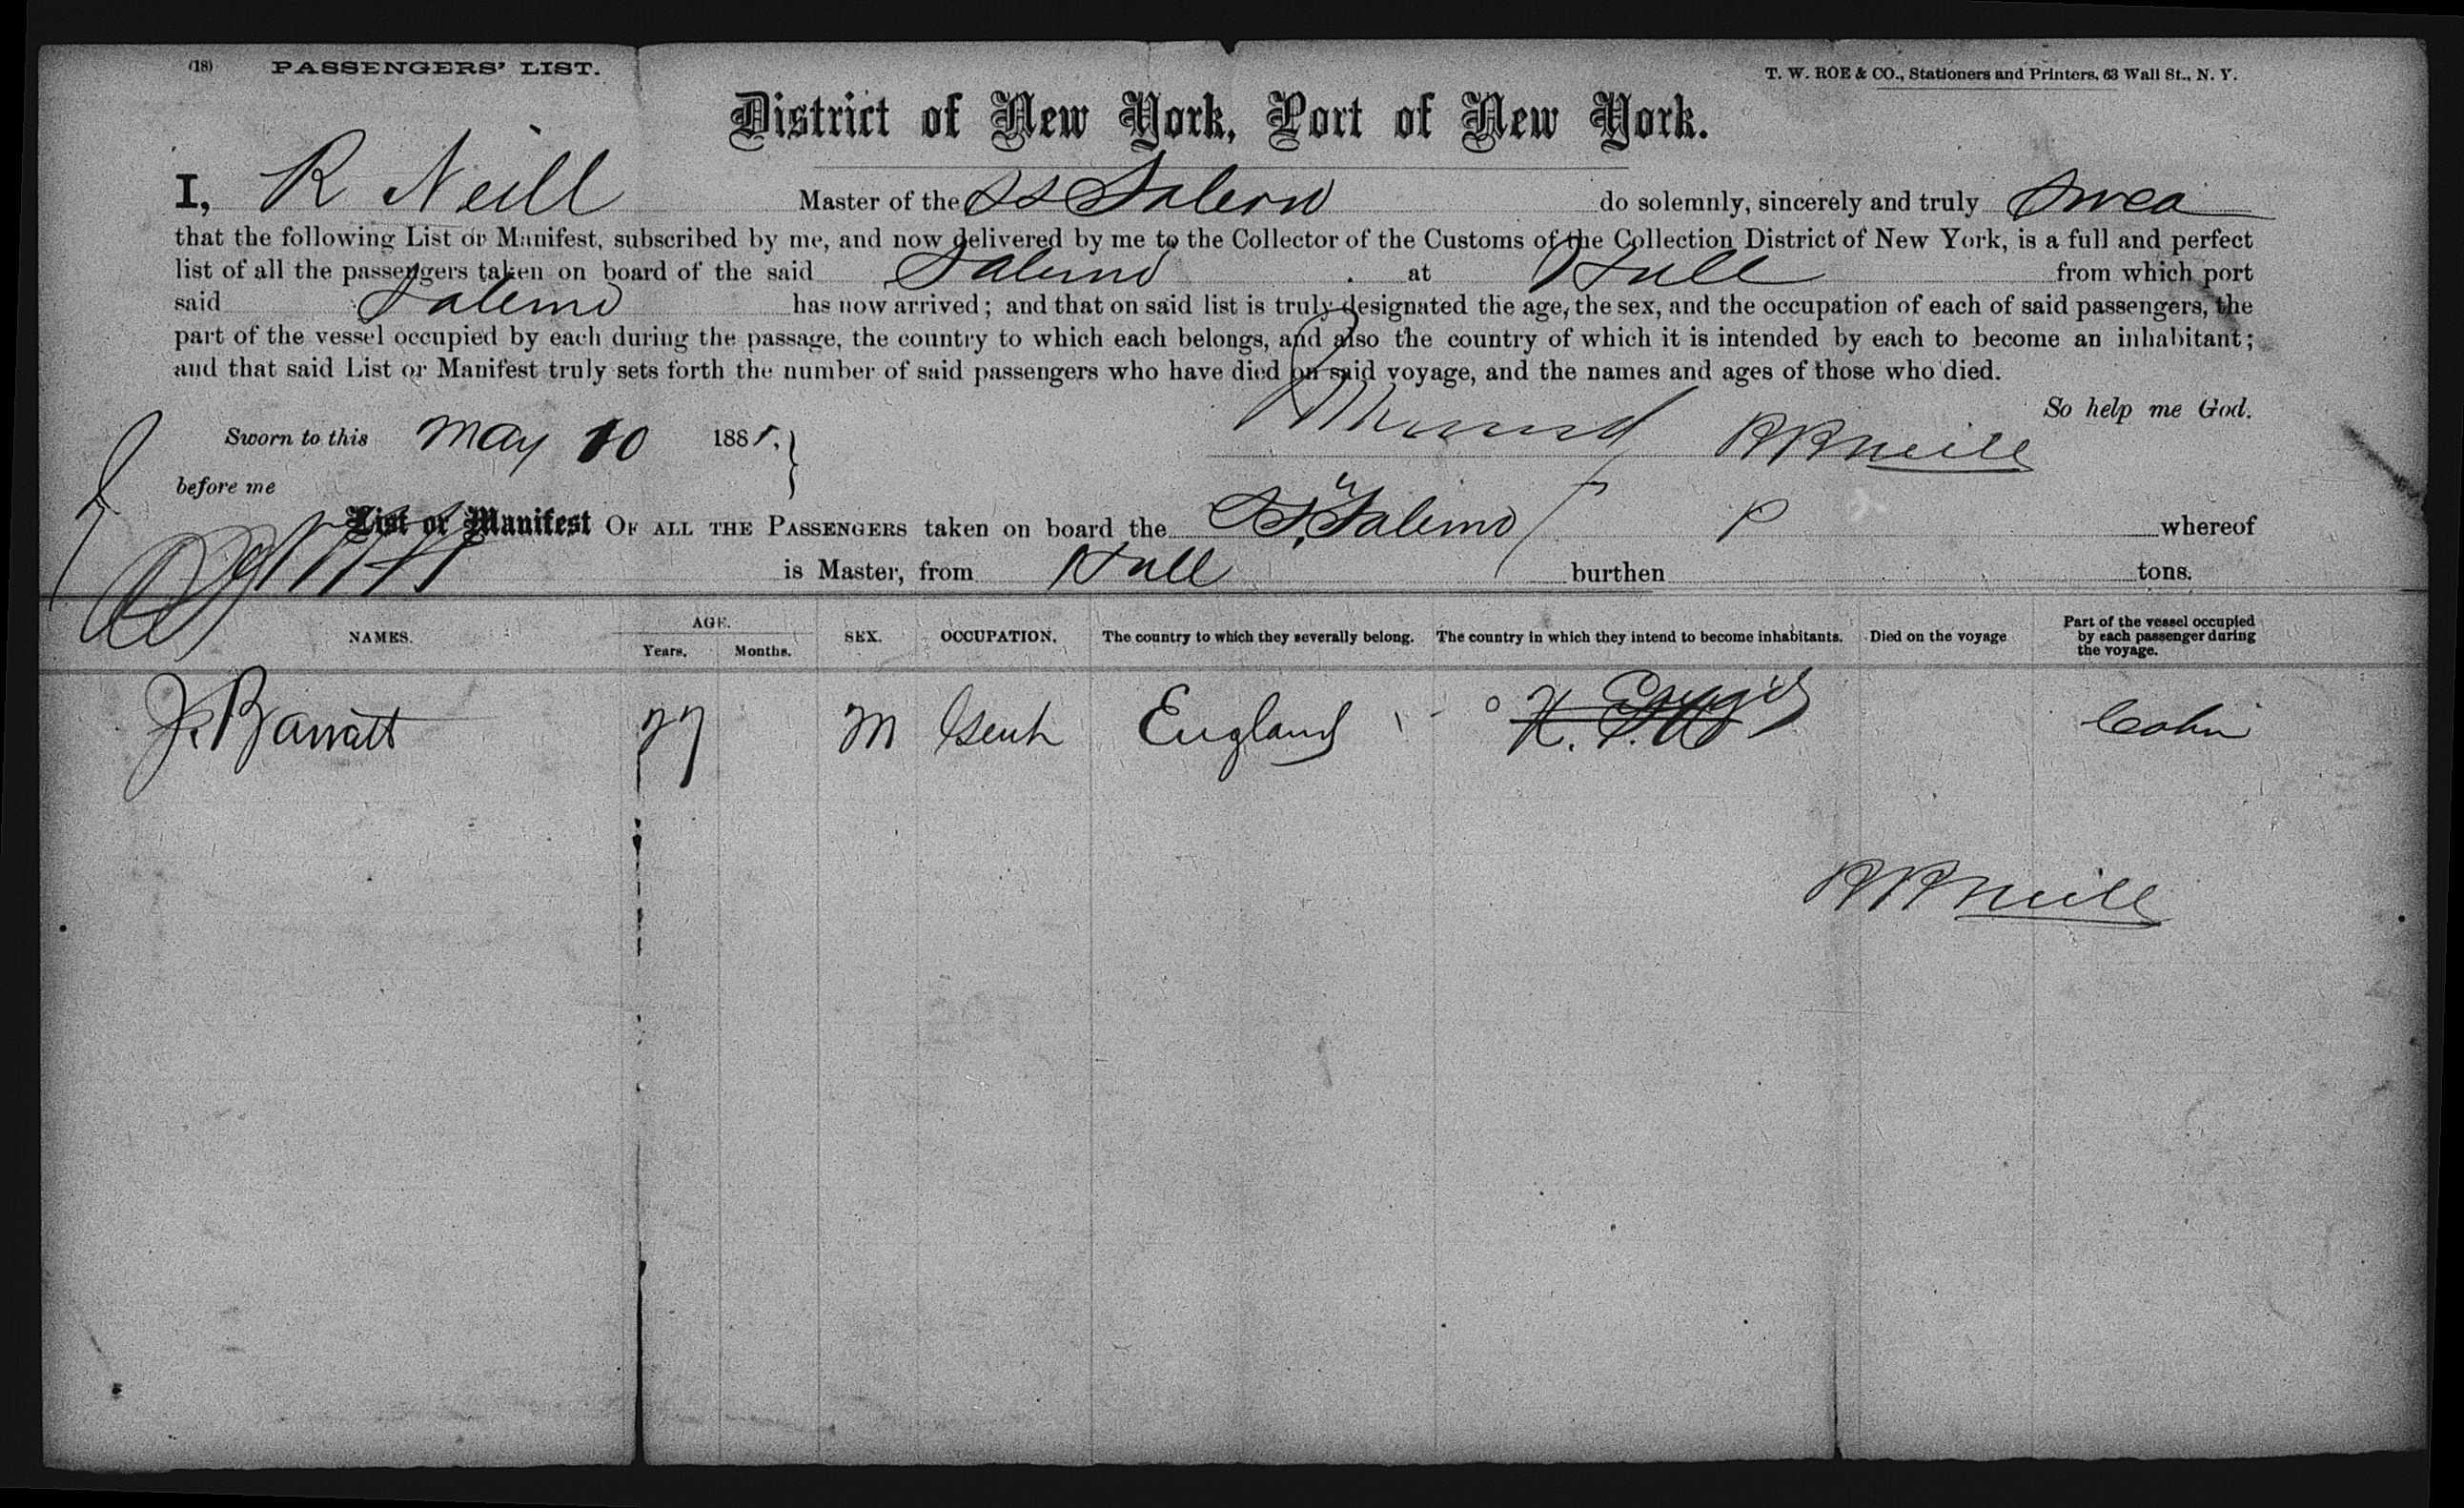 (18) PASSENGERS' LIST.
T. W. ROE & CO., Stationers and Printers, 63 Wall St., N. Y.
District of New York, Port of New York.
I, R Neill Master of the SS Salerno do solemnly, sincerely and truly swea
that the following List or Manifest, subscribed by me, and now delivered by me to the Collector of the Customs of the Collection District of New York, is a full and perfect
list of all the passengers taken on board of the said Salerno at Hull from which port
said Salerno has now arrived; and that on said list is truly designated the age, the sex, and the occupation of each of said passengers, the
part of the vessel occupied by each during the passage, the country to which each belongs, and also the country of which it is intended by each to become an inhabitant;
and that said List or Manifest truly sets forth the number of said passengers who have died on said voyage, and the names and ages of those who died.
So help me God.
Sworn to this May 10 188 RRNeill
before me
List or Manifest OF ALL THE PASSENGERS taken on board the SS, "Salerno whereof
is Master, from Hull burthen tons.
NAMES. AGE. Years. Months. SEX. OCCUPATION. The country to which they severally belong. The country in which they intend to become inhabitants. Died on the voyage Part of the vessel occupied by each passenger during the voyage.
J. Barratt 27 M Gent England Cabin
RRNeill